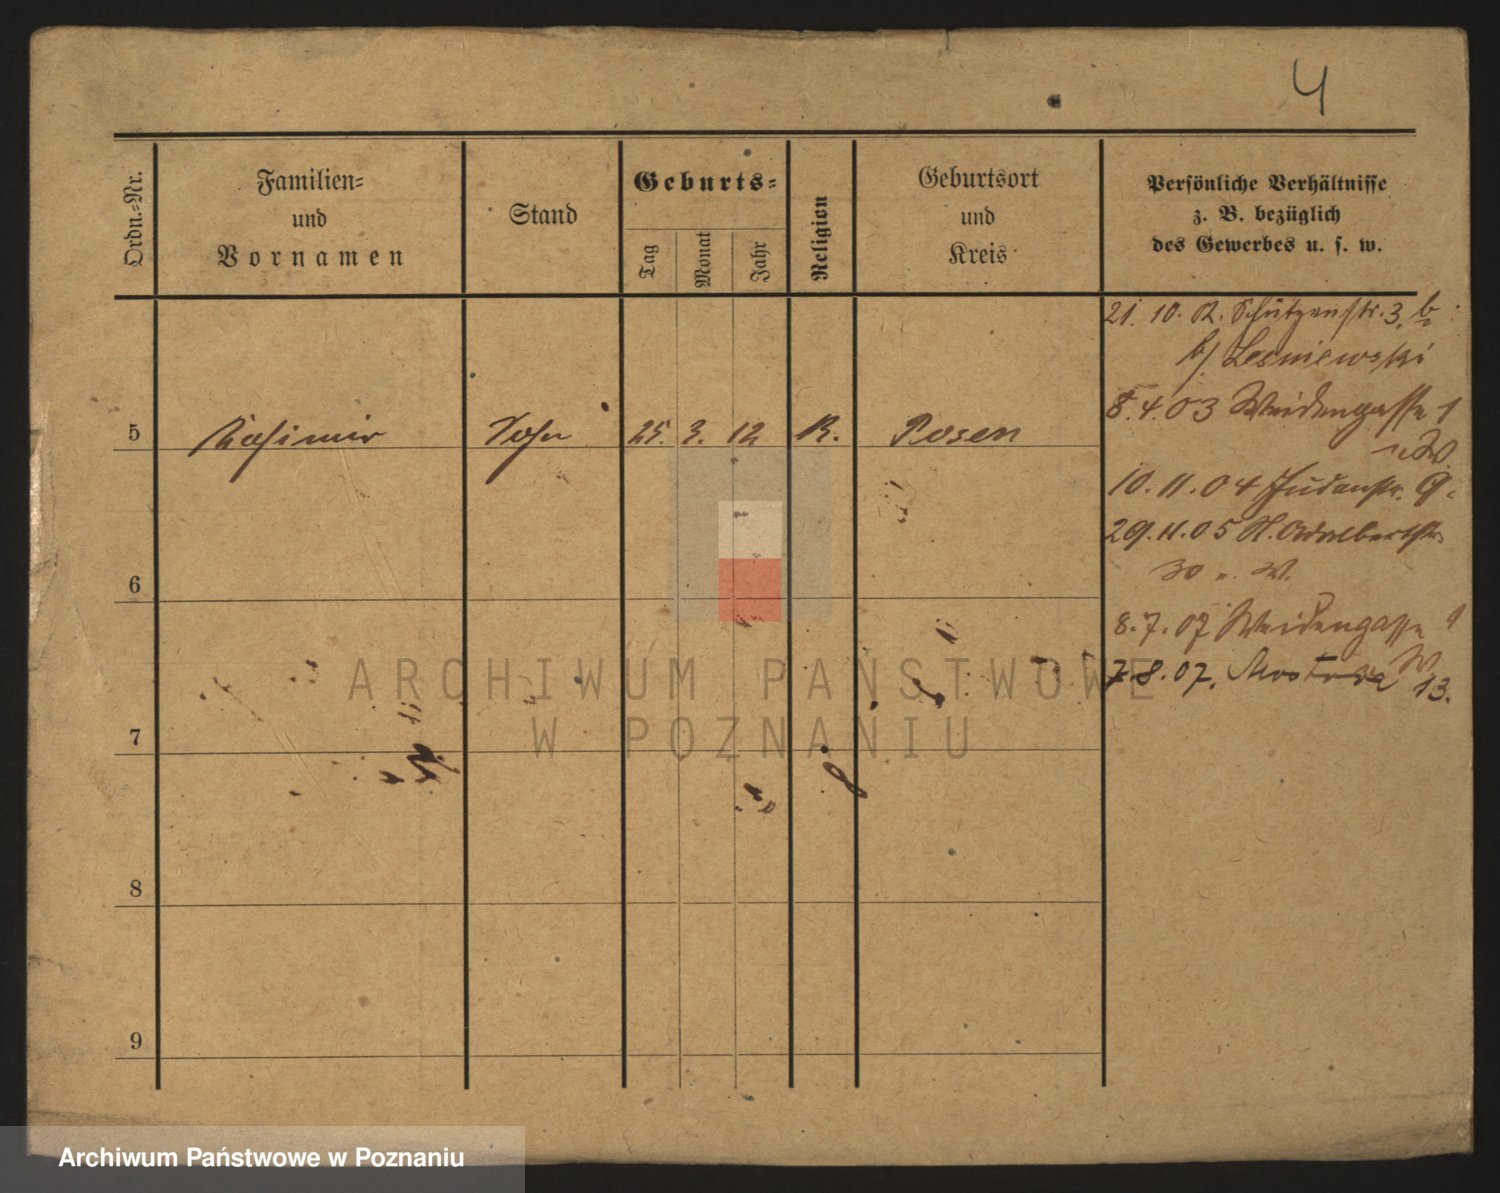 4
Ordn.-Nr.
Familien-
und
Vornamen
Stand
Geburts-
Tag
Monat
Jahr
Religion
Geburtsort
und
Kreis
Persönliche Verhältnisse
z. B. bezüglich
des Gewerbes u. s. w.
21. 10. Schützenstr. 3. b
b/ Lesniewski
8. 4. 03 Weidengasse 1
5 Kasimir Sohn 25. 3. 12 K. Posen
10. 11. 04 Judenstr. 9.
29. 11. 05 St. Adalbertstr.
30 W.
6
8. 7. 07 Weidengasse 1
W
7. 8. 07. 13.
7
8
9
ARCHIWUM PAŃSTWOWE
W POZNANIU
Archiwum Państwowe w Poznaniu